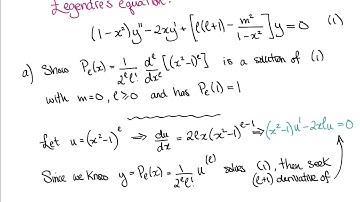 Legendre's equation:
(1-x²)y'' - 2xy' + [ℓ(ℓ+1) - m²/(1-x²)]y = 0 (1)
a) Show Pₑ(x) = 1/(2^ℓ ℓ!) d^ℓ/dx^ℓ [(x²-1)^ℓ] is a solution of (1)
with m=0, ℓ≥0 and has Pₑ(1) = 1
Let u = (x²-1)^ℓ ⟹ du/dx = 2ℓx(x²-1)^(ℓ-1) ⟹ (x²-1)u' - 2xℓu = 0
Since we know y = Pₑ(x) = 1/(2^ℓ ℓ!) u^(ℓ) solves (1), then seek
(ℓ+1) derivative of